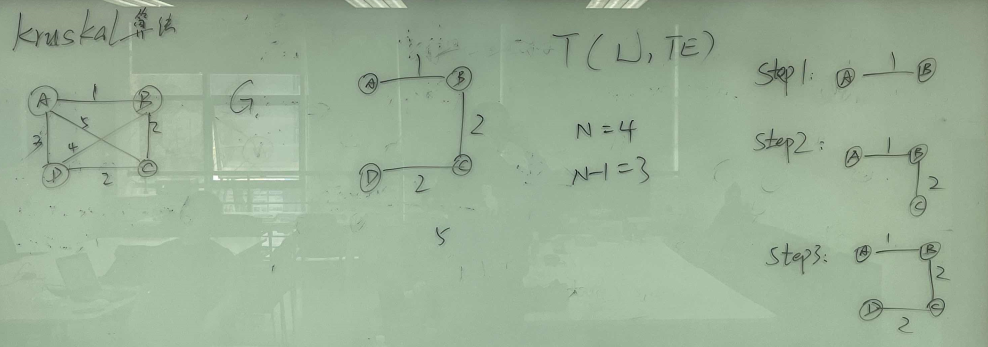 Kruskal算法
A 1 B
5
3 4 2
D 2 C
G
A 1 B
2
D 2 C
5
T(U,TE)
N=4
N-1=3
Step1: A 1 B
Step2: A 1 B
2
C
Step3: A 1 B
2
D 2 C